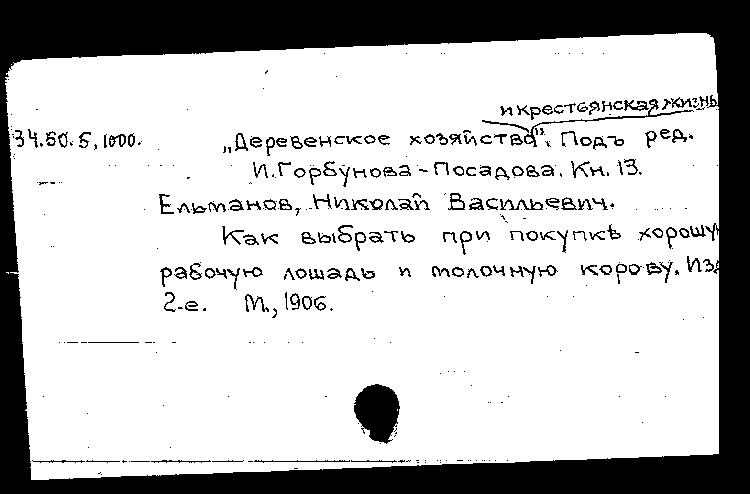 и крестьянская жизнь
34.50.5, 1000. „Деревенское хозяйство“. Подъ ред.
И. Горбунова-Посадова. Кн. 13.
Ельманов, Николай Васильевич.
Как выбрать при покупкѣ хорошую
рабочую лошадь и молочную корову. Изд
2-е. М., 1906.